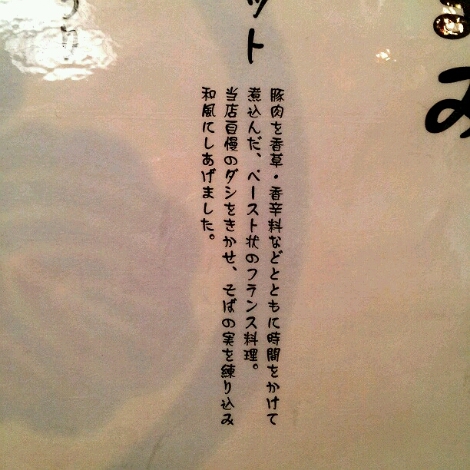 み
ット
豚肉を香草・香辛料などとともに時間をかけて
煮込んだ、ペースト状のフランス料理。
当店自慢のダシをきかせ、そばの実を練り込み
和風にしあげました。